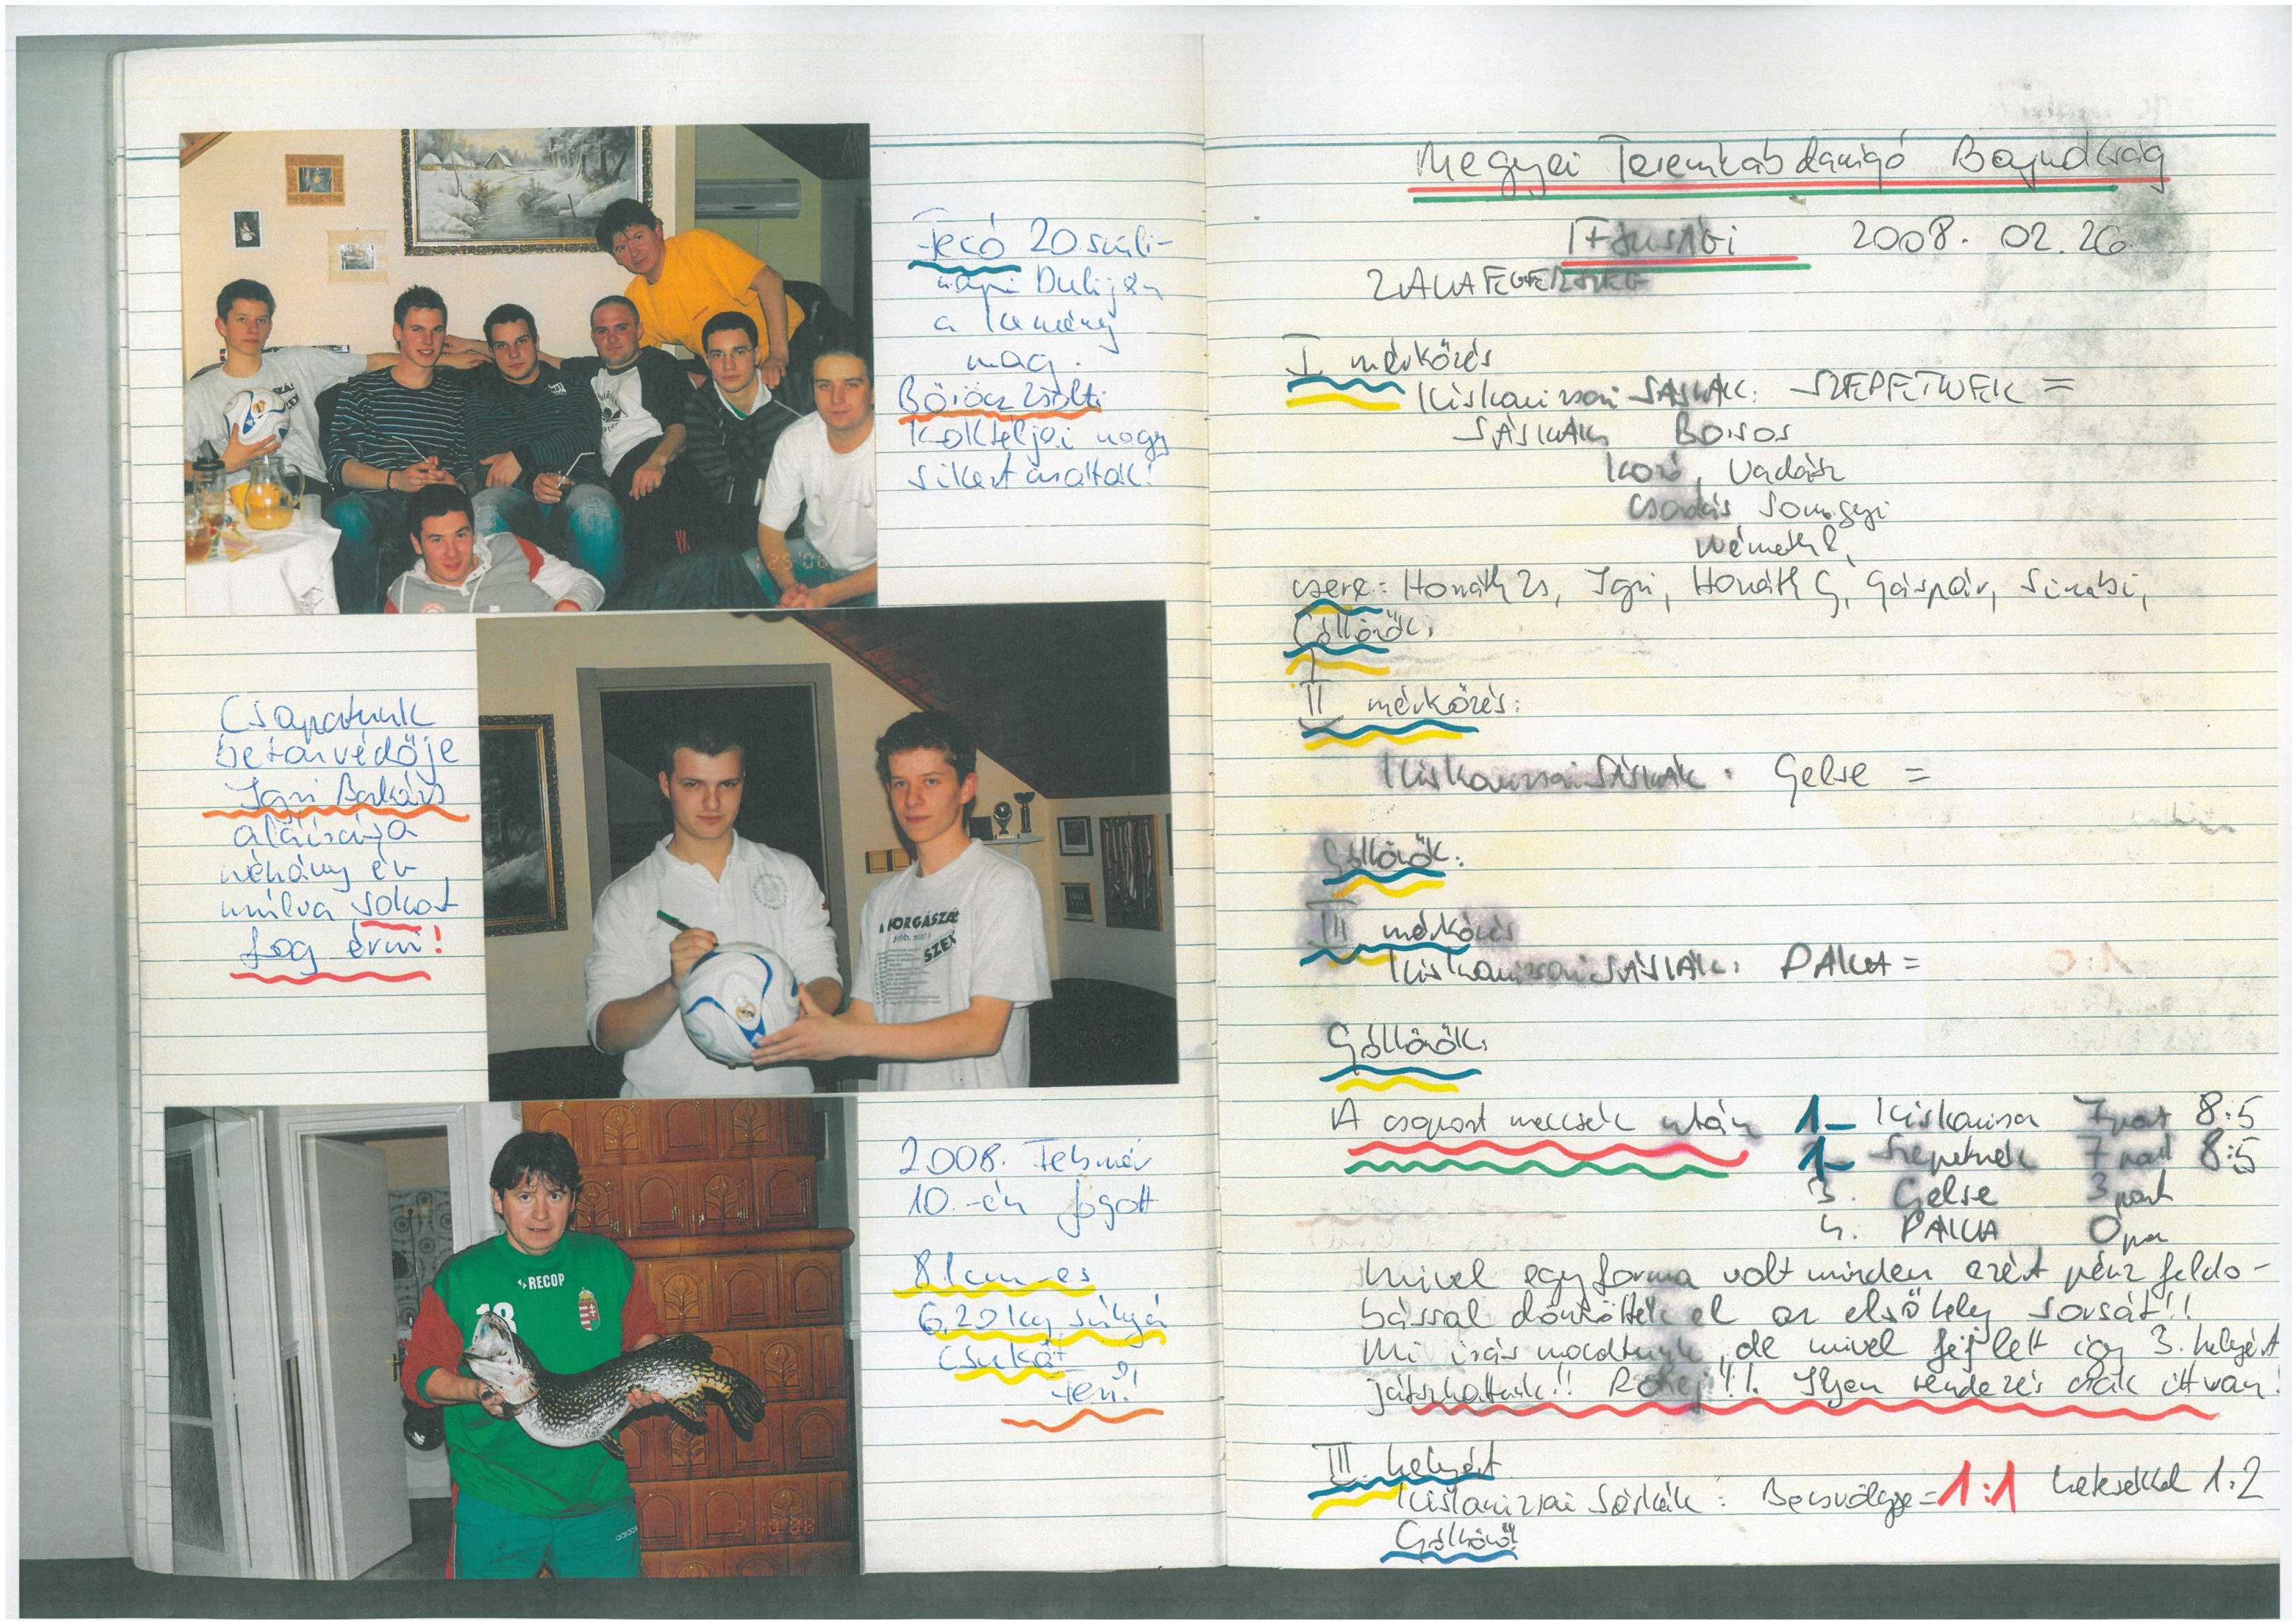 Fecó 20 szüli-
napi Buliján
a kemény
mag.
Böröcz Zsolti
koktéljai nagy
sikert arattak!
Csapatunk
betonvédője
Igri Balázs
aláírása
néhány év
múlva sokat
fog érni!
HORGÁSZAT
SZEX
RECOP
18
adidas
2008. Február
10.-én fogott
81 cm-es
6,20 kg súlyú
csukát
2 10 '08
Megyei Teremlabdarúgó Bajnokság
Ifjusági 2008. 02. 26
ZALAEGERSZEG
I. mérkőzés
Kiskanizsai SÁSKÁK: SZEPETNEK =
SÁSKÁK Boisos
Kozó, Vadász
Csordás Somogyi
Németh R,
csere: Horváth Zs, Igri, Horváth G, Gáspár, Szabó,
Góllövők:
II mérkőzés:
Kiskanizsai SÁSKÁK : Gelse =
Góllövők:
III mérkőzés
Kiskanizsai SÁSKÁK : PALKA =
Góllövők:
A csoport meccsek után 1_ Kiskanizsa 7 pont 8:5
1_ Szepetnek 7 pont 8:5
3. Gelse 3 pont
4. PALKA 0 pon
Mivel egyforma volt minden ezért pénz feldo-
bással döntötték el az első hely sorsát!!
Mi írás mondtunk, de mivel fej lett így 3. helyért
játszhattunk!! Röhej!!!. Ilyen rendezés csak itt van!
III. helyért
Kiskanizsai Sáskák : Becsvölgye = 1:1 hetesekkel 1:2
Góllövő: